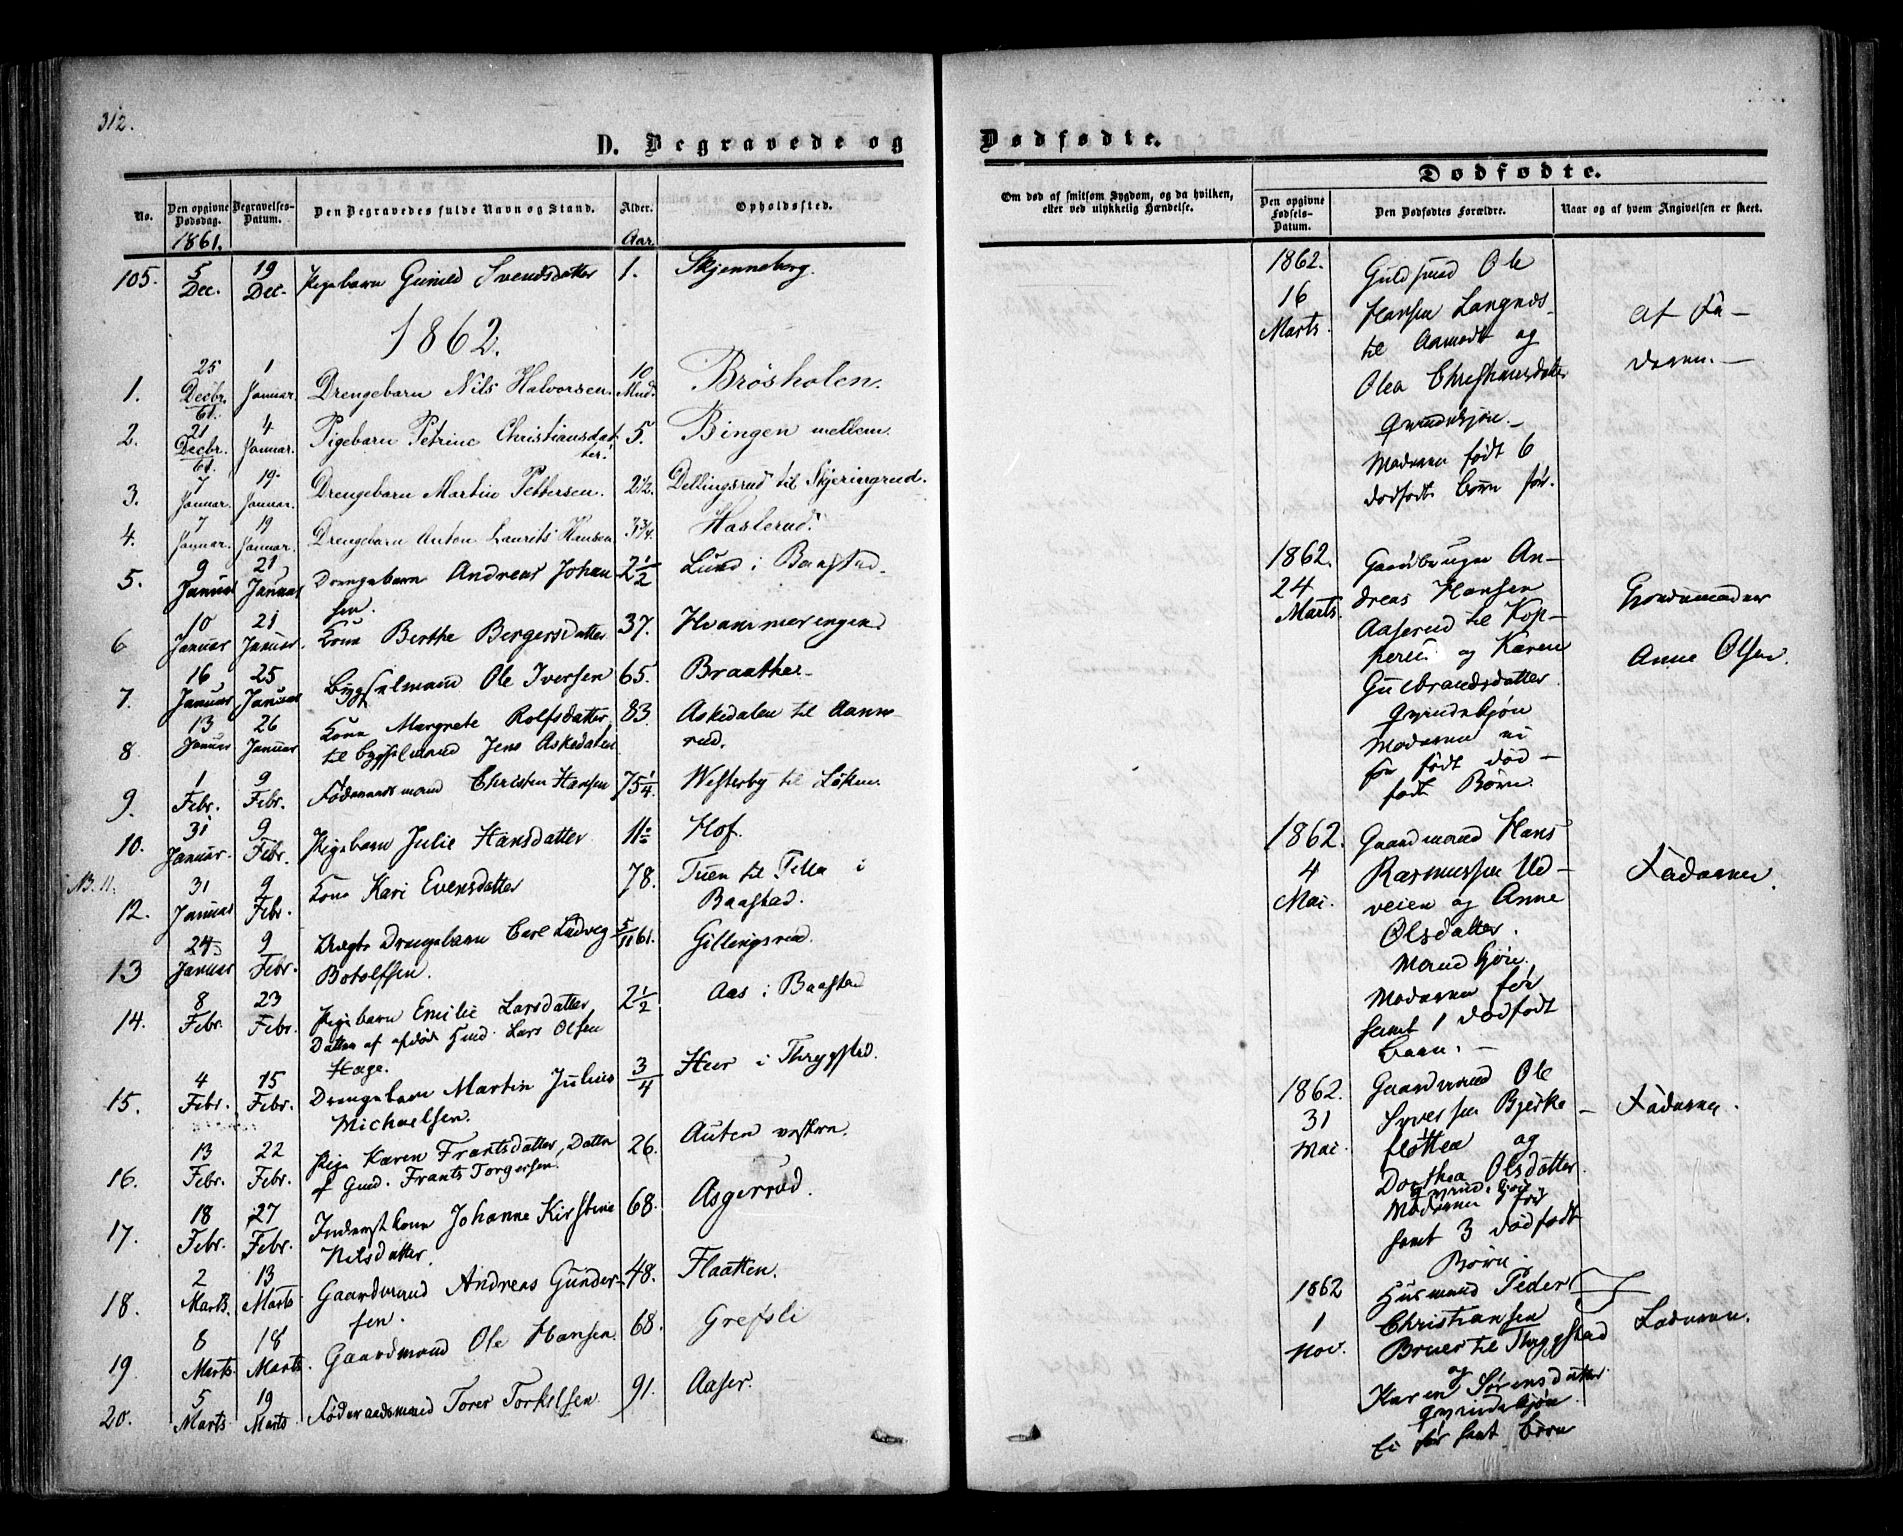 312.
D. Begravede og
No.
Den opgivne Dødsdag.
Begravelses-Datum.
Den Begravedes fulde Navn og Stand.
Alder.
Opholdssted.
1861.
Aar.
105. 5 Dec. 19 Dec. Pigebarn Gunild Svendsdatter 1. Skjenneborg.
1862.
1. 25 Decbr. 61. 1 Januar. Drengebarn Nils Halvorsen. 10 Mnd. Brøsholen.
2. 21 Decbr. 61. 4 Januar. Pigebarn Petrine Christiansdat 5. Bingen mellem.
ter.
3. 7 Januar. 19. Januar. Drengebarn Martin Pettersen. 2½. Dellingsrud til Skjeringrud.
4. 7 Januar. 19 Januar. Drengebarn Anton Laurits Hansen 3¾. Haslerud.
5. 9 Januar 21 Januar Drengebarn Andreas Johan 2½ Lund i Baastad.
sen.
6 10 Januar 21 Januar. Kone Berthe Bergersdatter 37. Hvammeringen
7. 16 Januar 25 Januar Bygselmand Ole Iversen 65. Braathe
8 13 Januar 26 Januar Kone Margrete Rolfsdatter 83. Askedalen til Aam-
til Bygselmand Jens Askedalen rud.
9. 1 Febr. 9 Febr. Føderaadsmand Christen Hansen 75¼. Westerby til Løken.
10. 31 Januar. 9 Febr. Pigebarn Julie Hansdatter 11½ Hof.
NB. 11.
12. 31 Januar 9 Febr. Kone Kari Evensdatter 78. Tuen til Tella i
Baastad.
13 24 Januar 9 Febr. Uægte Drengebarn Carl Ludvig 5/11 61. Gillingsrud.
Botolfsen.
14. 8 Febr. 23 Febr. Pigebarn Emilie Larsdatter 2½ Aas i Baastad
Datter af afdøde Gmd. Lars Olsen
Haga.
15. 4 Febr. 15 Febr. Drengebarn Martin Julius 3/4 Huer i Thrygstad.
Michaelsen.
16. 13 Febr. 22 Febr. Pige Karen Frantsdatter, Datter 26. Auten vestre.
af Gmd. Frants Torgersen.
17. 18 Febr. 27 Febr. Inderst Kone Johanne Kirstine 68. Asgerrud.
Nilsdatter.
18. 2 Marts. 13 Marts Gaardmand Andreas Gunder- 48. Flaatten.
sen.
19 8 Marts. 18 Marts. Gaardmand Ole Hansen 68. Grefsli
20. 5 Marts 19 Marts Føderaadsmand Torer Torkelsen 91. Aaser.
Dødfødte.
Om død af smitsom Sygdom, og da hvilken, eller ved ulykkelig Hændelse.
Dødfødte.
Den opgivne Fødsels-Datum.
Den Dødfødtes Forældre.
Naar og af hvem Angivelsen er skeet.
1862. Guldsmed Ole
16 Hansen Langnes
Marts. til Aamodt og
Olea Christiansdatter
Qvindekjøn.
Moderen født 6
dødfødte Børn før.
af Fa-
deren.
1862. Gaardbruger An-
24 dreas Hansen
Marts. Aaserud til Kop-
perud og Karen
Gulbrandsdatter.
Qvindekjøn
Moderen ei
før født død-
født Børn.
Gjordemoder
Anne Olsen.
1862. Gaardmand Hans
4 Rasmussen Ud-
Mai. veien og Anne
Olsdatter.
Mandkjøn.
Moderen før
havt 1 dødfødt
Barn.
Faderen.
1862. Gaardmand Ole
31 Syversen Bjerke
Mai. fløtten og
Dorthea Olsdatter.
Qvindekjøn
Moderen før
havt 3 dødfødt
Børn.
Faderen.
1862 Husmand Peder
1 Christiansen
Nov. Bruer til Thrygstad
og
Karen Sørensdatter
Qvindekjøn.
Ei før havt Børn
Faderen.